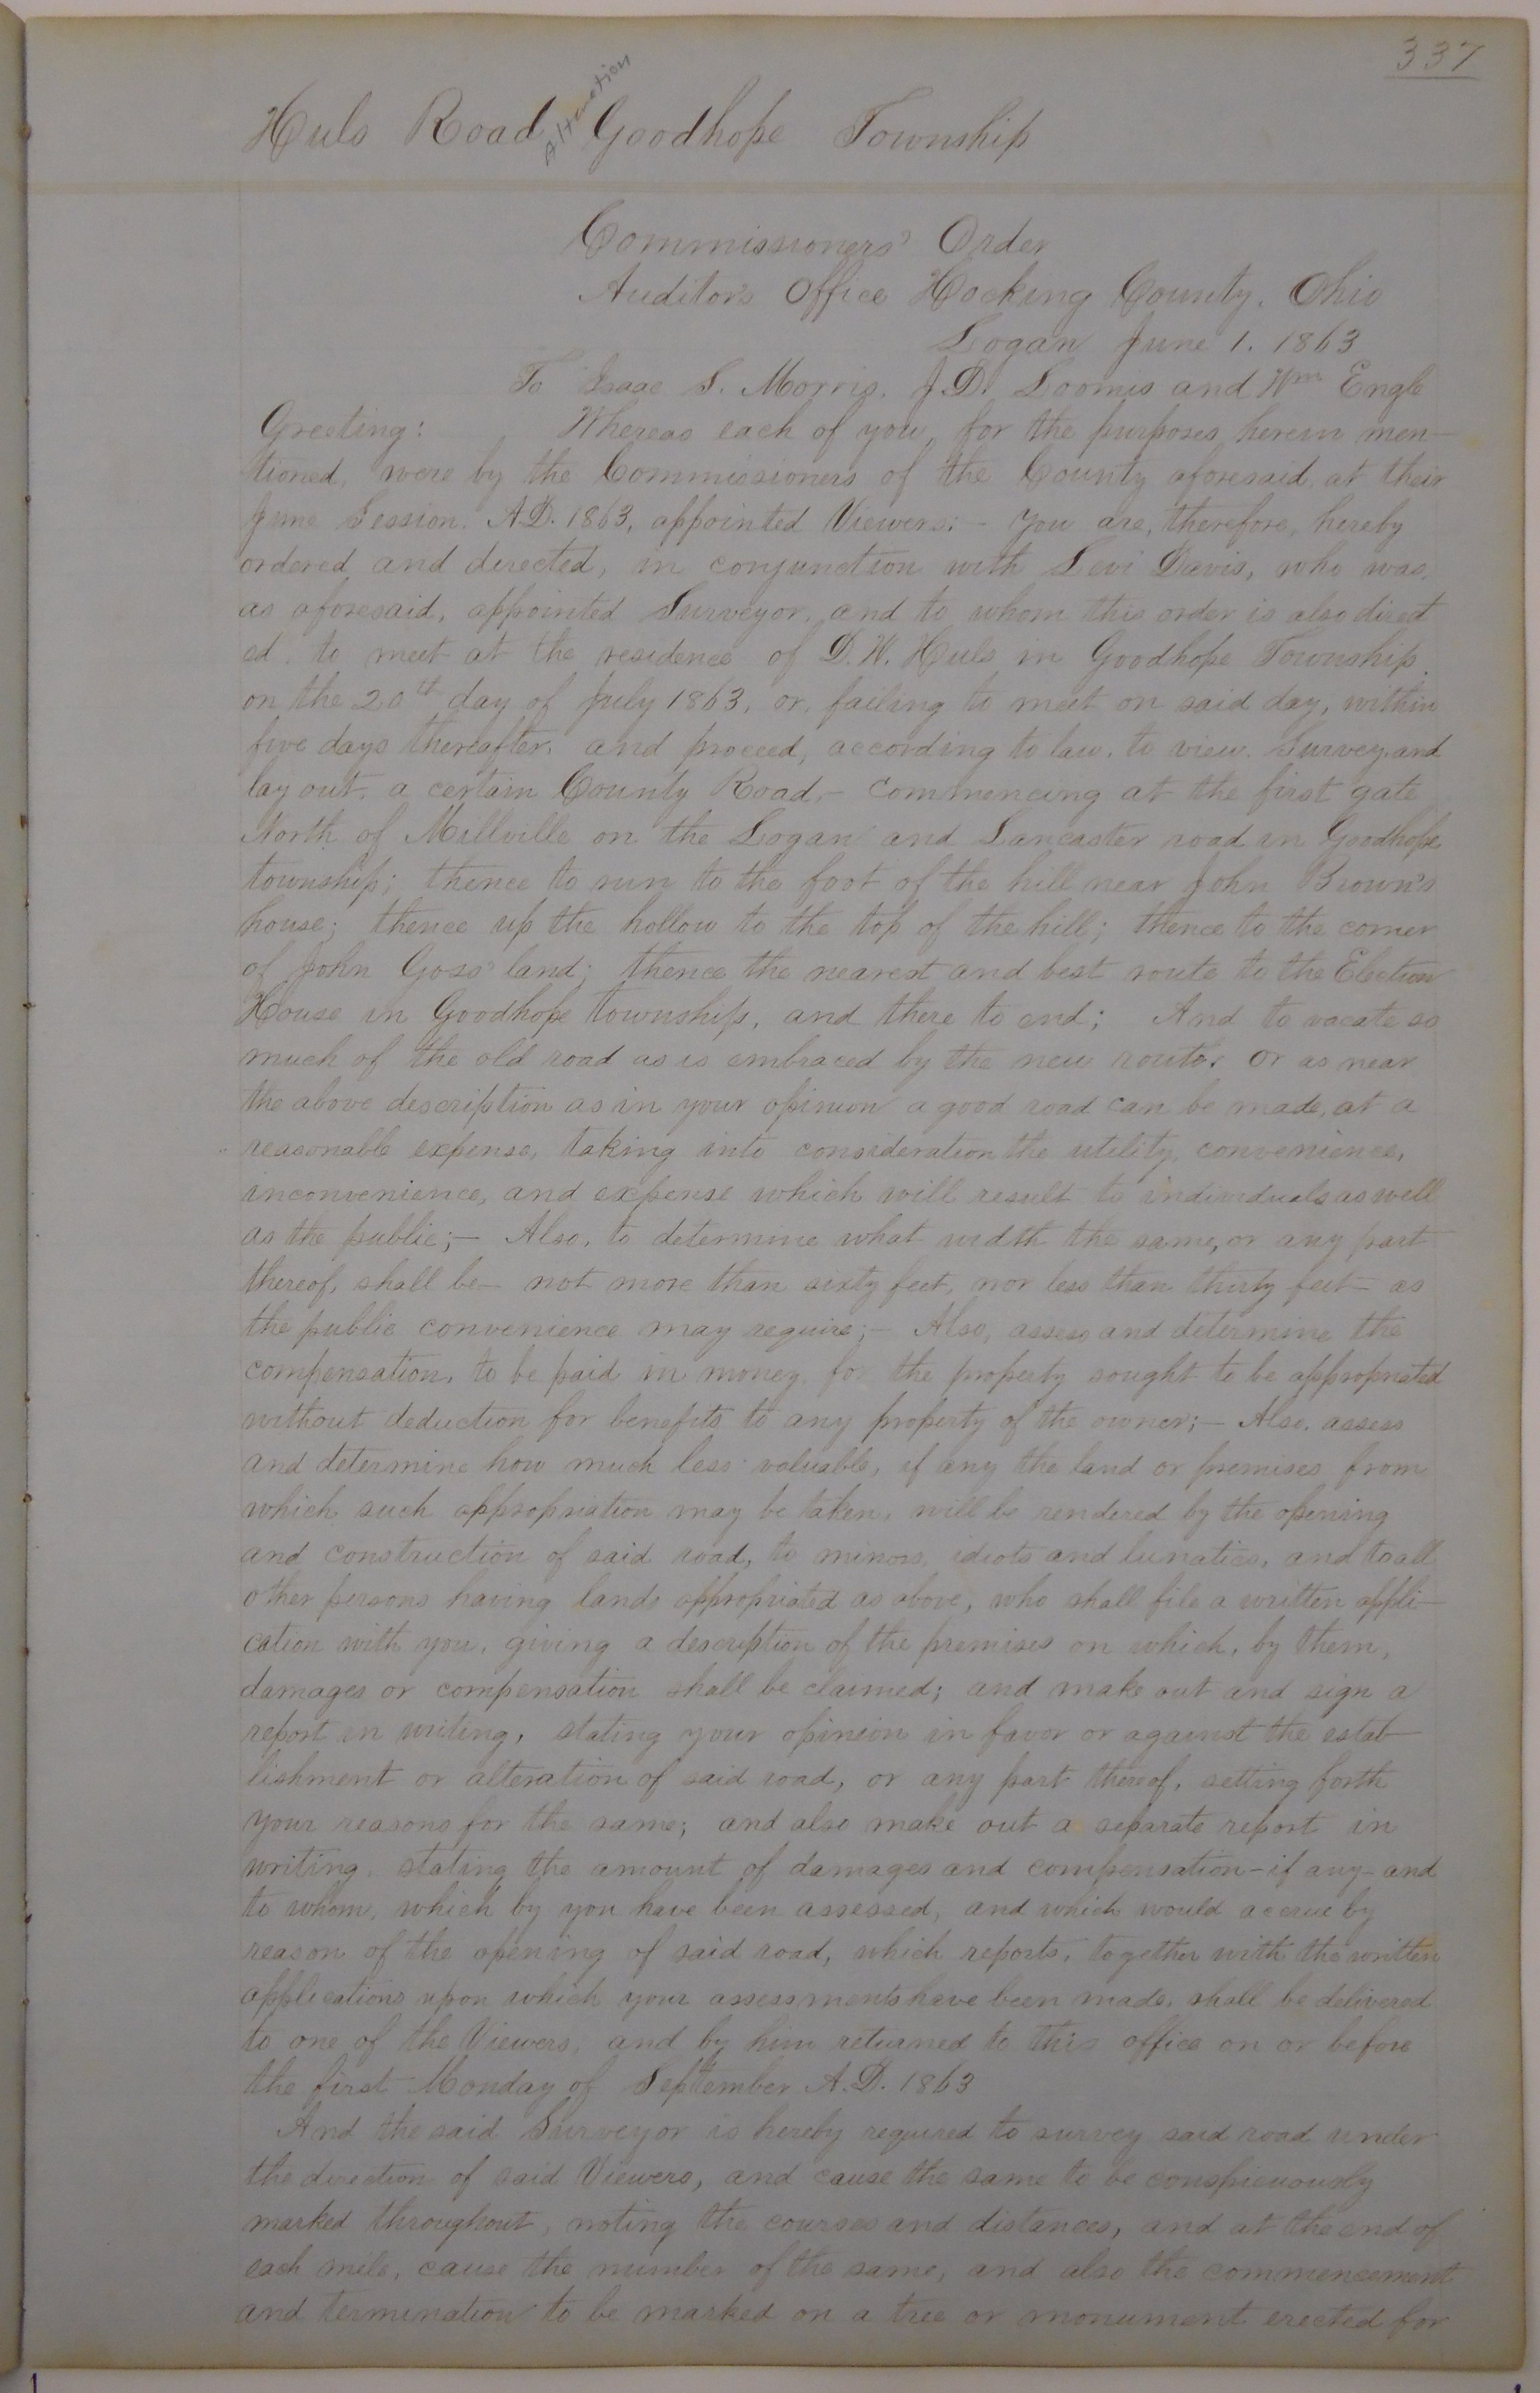 337
Huls Road Alteration Goodhope Township
Commissioners' Order
Auditors Office Hocking County, Ohio
Logan June 1. 1863
To Isaac S. Morris, J. D. Loomis and Wm Engle
Greeting: Whereas each of you, for the purposes herein men-
tioned, were by the Commissioners of the County aforesaid, at their
June Session, A.D. 1863, appointed Viewers:- You are, therefore, hereby
ordered and directed, in conjunction with Levi Davis, who was,
as aforesaid, appointed Surveyor, and to whom this order is also direct
ed, to meet at the residence of D. W. Huls in Goodhope Township
on the 20th day of July 1863, or, failing to meet on said day, within
five days thereafter, and proceed, according to law, to view, Survey, and
lay out, a certain County Road,- Commencing at the first gate
North of Millville on the Logan and Lancaster road in Goodhope
township; thence to run to the foot of the hill near John Brown's
house; thence up the hollow to the top of the hill; thence to the corner
of John Goss' land; thence the nearest and best route to the Election
House in Goodhope township, and there to end; And to vacate so
much of the old road as is embraced by the new route, or as near
the above description as in your opinion a good road can be made, at a
reasonable expense, taking into consideration the utility, convenience,
inconvenience, and expense which will result to individuals as well
as the public;- Also, to determine what width the same, or any part
thereof, shall be- not more than sixty feet, nor less than thirty feet- as
the public convenience may require;- Also, assess and determine the
compensation, to be paid in money, for the property sought to be appropriated
without deduction for benefits to any property of the owner;- Also, assess
and determine how much less valuable, if any the land or premises from
which such appropriation may be taken, will be rendered by the opening
and construction of said road, to minors, idiots and lunatics, and to all
other persons having lands appropriated as above, who shall file a written appli-
cation with you, giving a description of the premises on which, by them,
damages or compensation shall be claimed; and make out and sign a
report in writing, stating your opinion in favor or against the estab-
lishment or alteration of said road, or any part thereof, setting forth
your reasons for the same; and also make out a separate report in
writing, stating the amount of damages and compensation-if any-and
to whom, which by you have been assessed, and which would accrue by
reason of the opening of said road, which reports, together with the written
applications upon which your assessments have been made, shall be delivered
to one of the Viewers, and by him returned to this office on or before
the first Monday of September A.D. 1863
And the said Surveyor is hereby required to survey said road under
the direction of said Viewers, and cause the same to be conspicuously
marked throughout, noting the courses and distances, and at the end of
each mile, cause the number of the same, and also the commencement
and termination to be marked on a tree or monument erected for